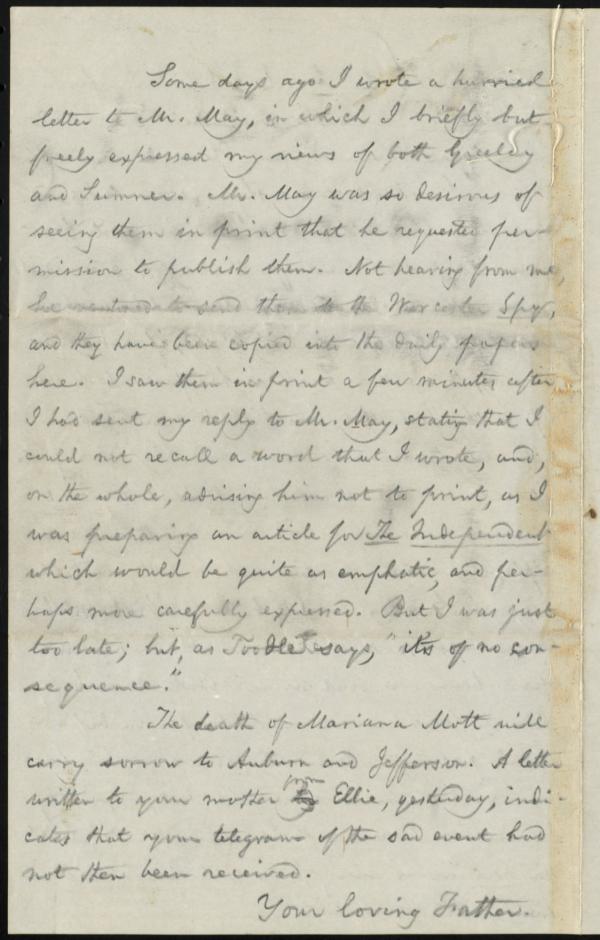 Some days ago I wrote a hurried
letter to Mr. May, in which I briefly but
freely expressed my views of both Greeley
and Sumner. Mr. May was so desirous of
seeing them in print that he requested per-
mission to publish them. Not hearing from me,
he ventured to send them to the Worcester Spy,
and they have been copied into the daily papers
here. I saw them in print a few minutes after
I had sent my reply to Mr. May, stating that I
could not recall a word that I wrote, and,
on the whole, advising him not to print, as I
was preparing an article for The Independent
which would be quite as emphatic, and per-
haps more carefully expressed. But I was just
too late; but, as Toodles says, "it's of no con-
sequence."
The death of Mariana Mott will
carry sorrow to Auburn and Jefferson. A letter
written to your mother from Ellie, yesterday, indi-
cates that your telegram of the sad event had
not then been received.
Your loving Father.